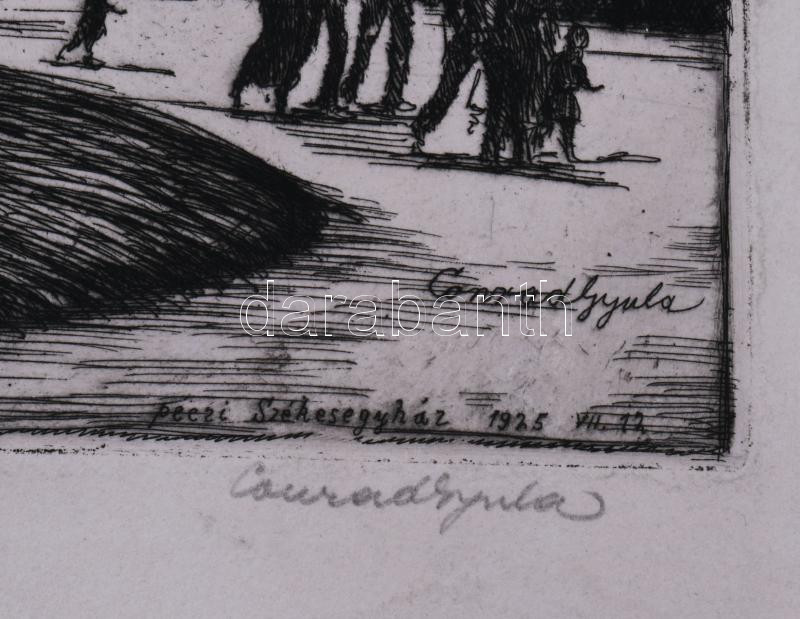 Conrad Gyula
darabanth
pécsi Székesegyház 1925 VII. 12
Conrad Gyula